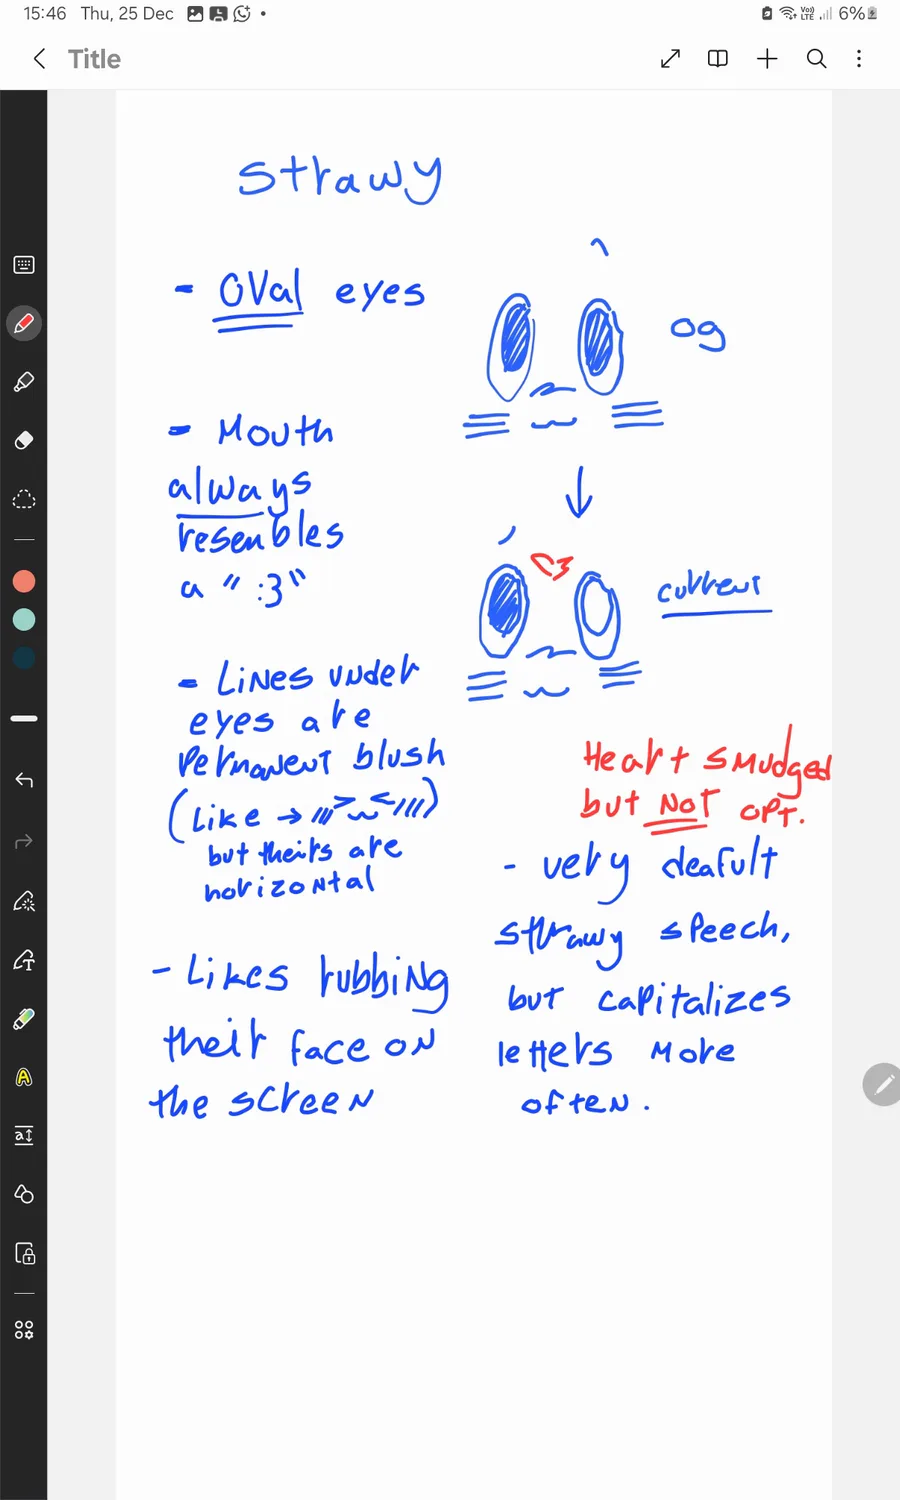 15:46 Thu, 25 Dec
Vo)) LTE 6%
Title
strawy
- OVal eyes
og
- Mouth
always
resenbles
a " :3"
current
- Lines under
eyes are
Permanent blush
(Like → ///>w<///)
but theirs are
horizontal
- Likes rubbing
their face on
the screen
Heart smudged
but NOT opt.
- very deafult
strawy speech,
but capitalizes
letters more
often.